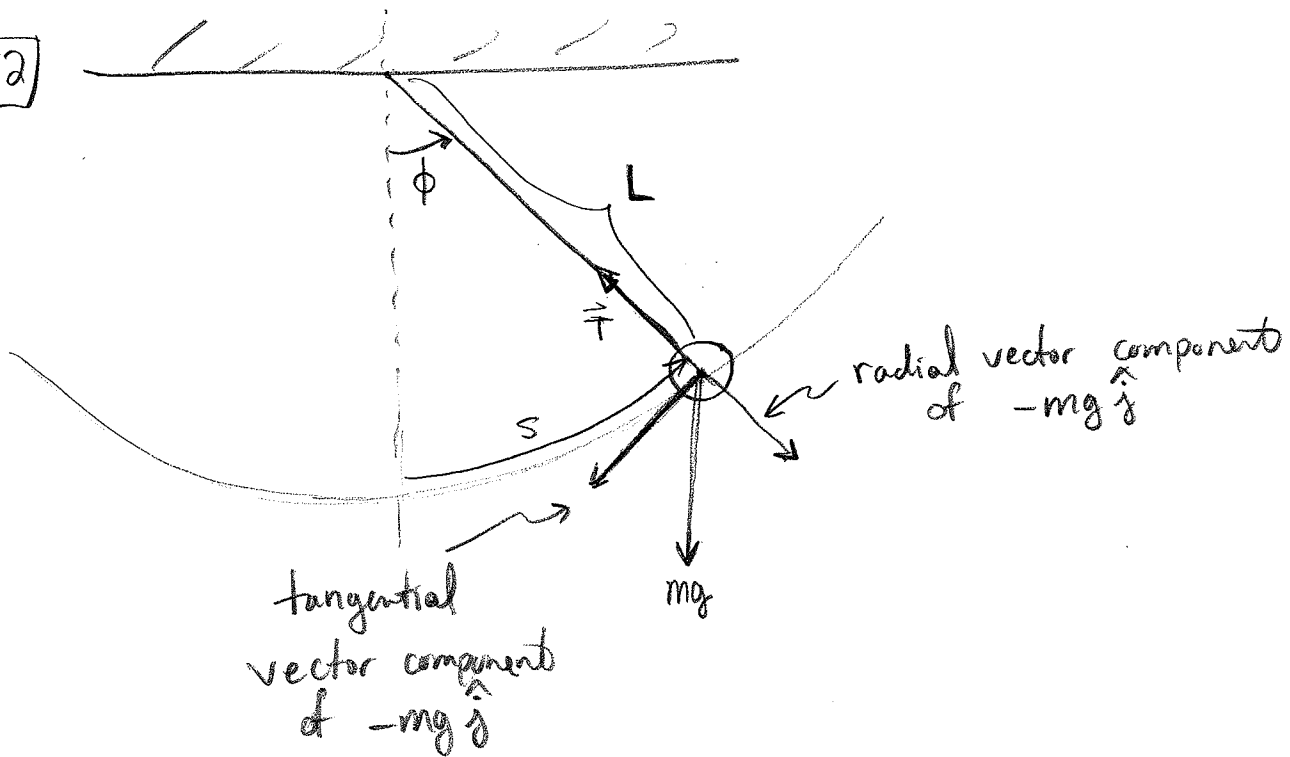 2
ϕ
L
T⃗
radial vector component
of -mg ĵ
s
mg
tangential
vector component
of -mg ĵ